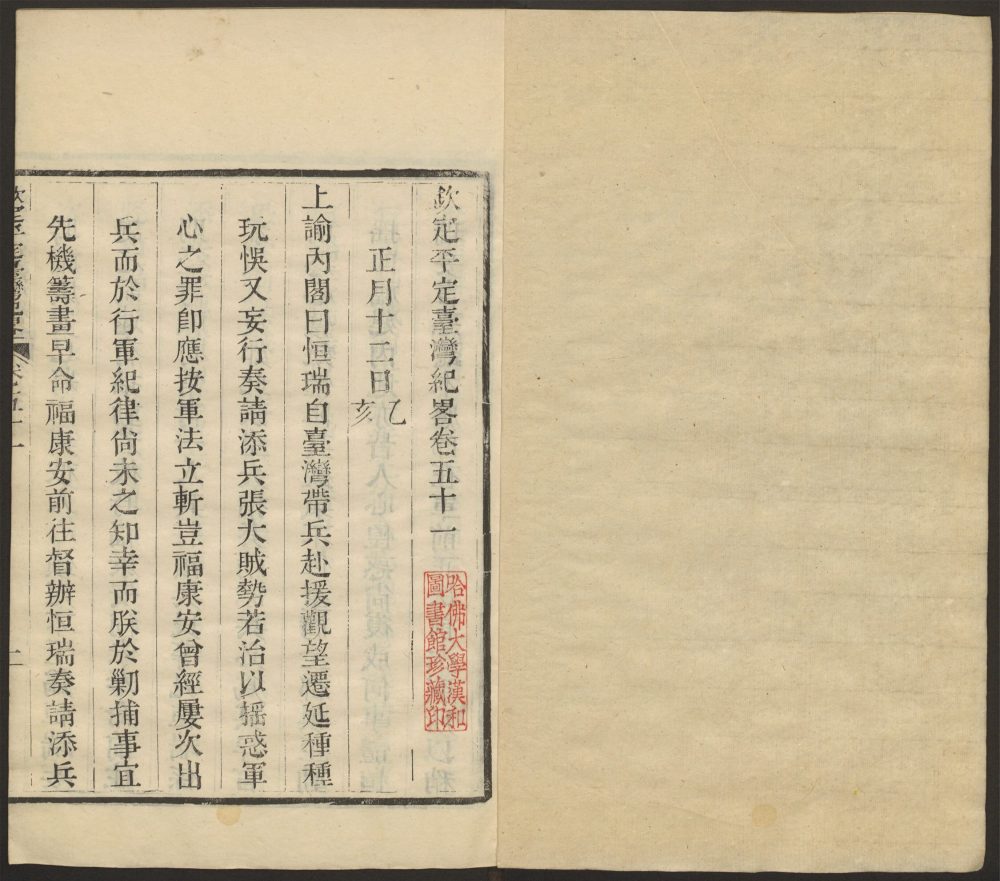 欽定平定臺灣紀畧卷五十一
哈佛大學漢和
圖書館珍藏印
正月十二日乙亥
上諭內閣曰恒瑞自臺灣帶兵赴援觀望遷延種種
玩悞又妄行奏請添兵張大賊勢若治以搖惑軍
心之罪卽應按軍法立斬豈福康安曾經屢次出
兵而於行軍紀律尚未之知幸而朕於勦捕事宜
先機籌畫早命福康安前往督辦恒瑞奏請添兵